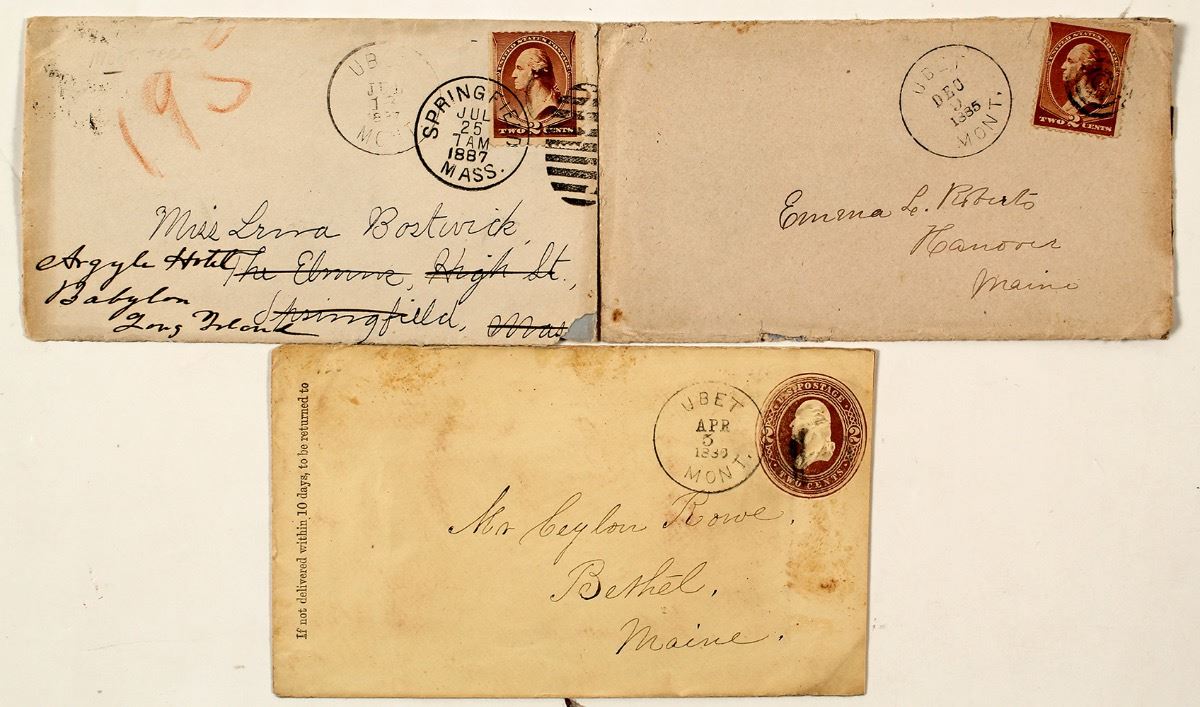 195
UBET
1887
MONT.
SPRINGFIELD
JUL
25
7 AM
1887
MASS.
UNITED STATES POSTAGE
TWO 2 CENTS
Miss Lena Bostwick,
Argyle Hotel The Elms, High St.,
Babylon
Springfield, Mass
Long Island
UBET
DEC
1885
MONT.
UNITED STATES POSTAGE
TWO 2 CENTS
Emma L. Roberts
Hanover
Maine
If not delivered within 10 days, to be returned to
UBET
APR
5
MONT.
U.S. POSTAGE
2 2
TWO CENTS
Mr Ceylon Rowe.
Bethel,
Maine.